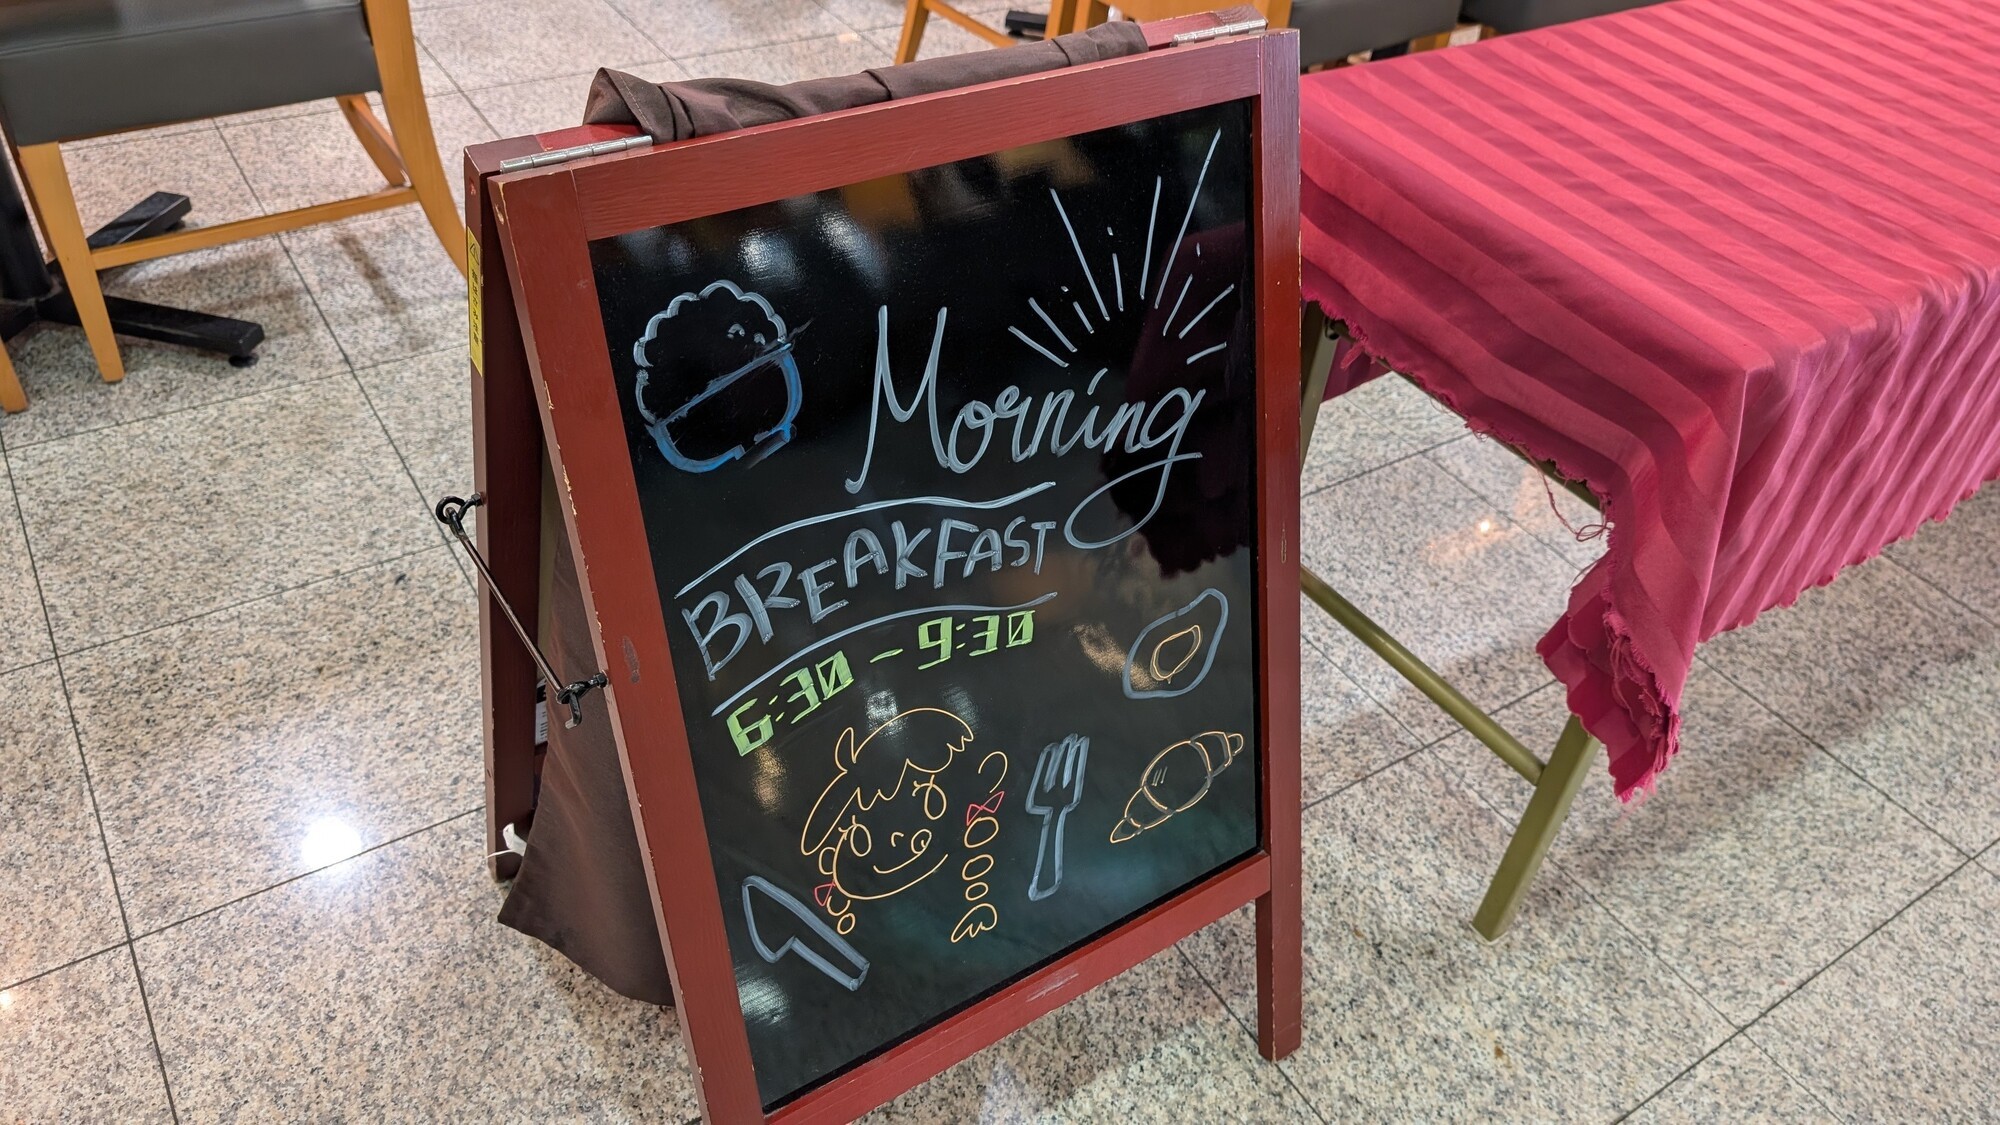 Morning
BREAKFAST
6:30 - 9:30